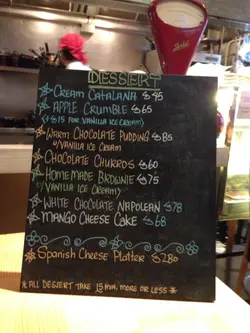 DESSERT
CREAM CATALANA $95
APPLE CRUMBLE $65
(+$15 FOR VANILLA ICE CREAM)
WARM CHOCOLATE PUDDING $85
W/VANILLA ICE CREAM
CHOCOLATE CHURROS $60
HOMEMADE BROWNIE $75
(W/VANILLA ICE CREAM)
WHITE CHOCOLATE NAPOLEAN $78
MANGO CHEESE CAKE $68
SPANISH CHEESE PLATTER $280
* ALL DESSERT TAKE 15 MIN, MORE OR LESS *